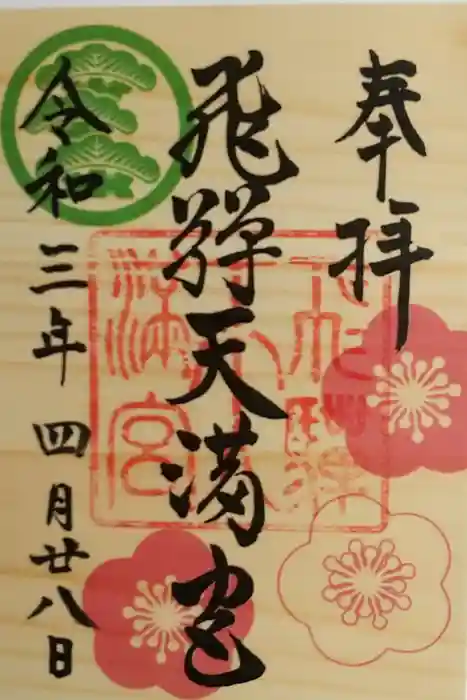 奉拝
飛騨天満宮
令和三年四月廿八日
飛騨天満宮